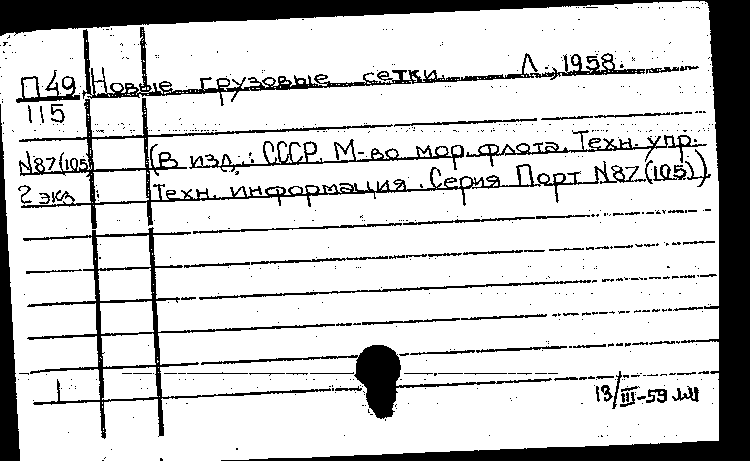 П49 Новые грузовые сетки. Л., 1958.
115
N87(105) (В изд.: СССР. М-во мор. флота. Техн. упр.
2 экз Техн. информация. Серия Порт N87(105)).
1
13/III-59